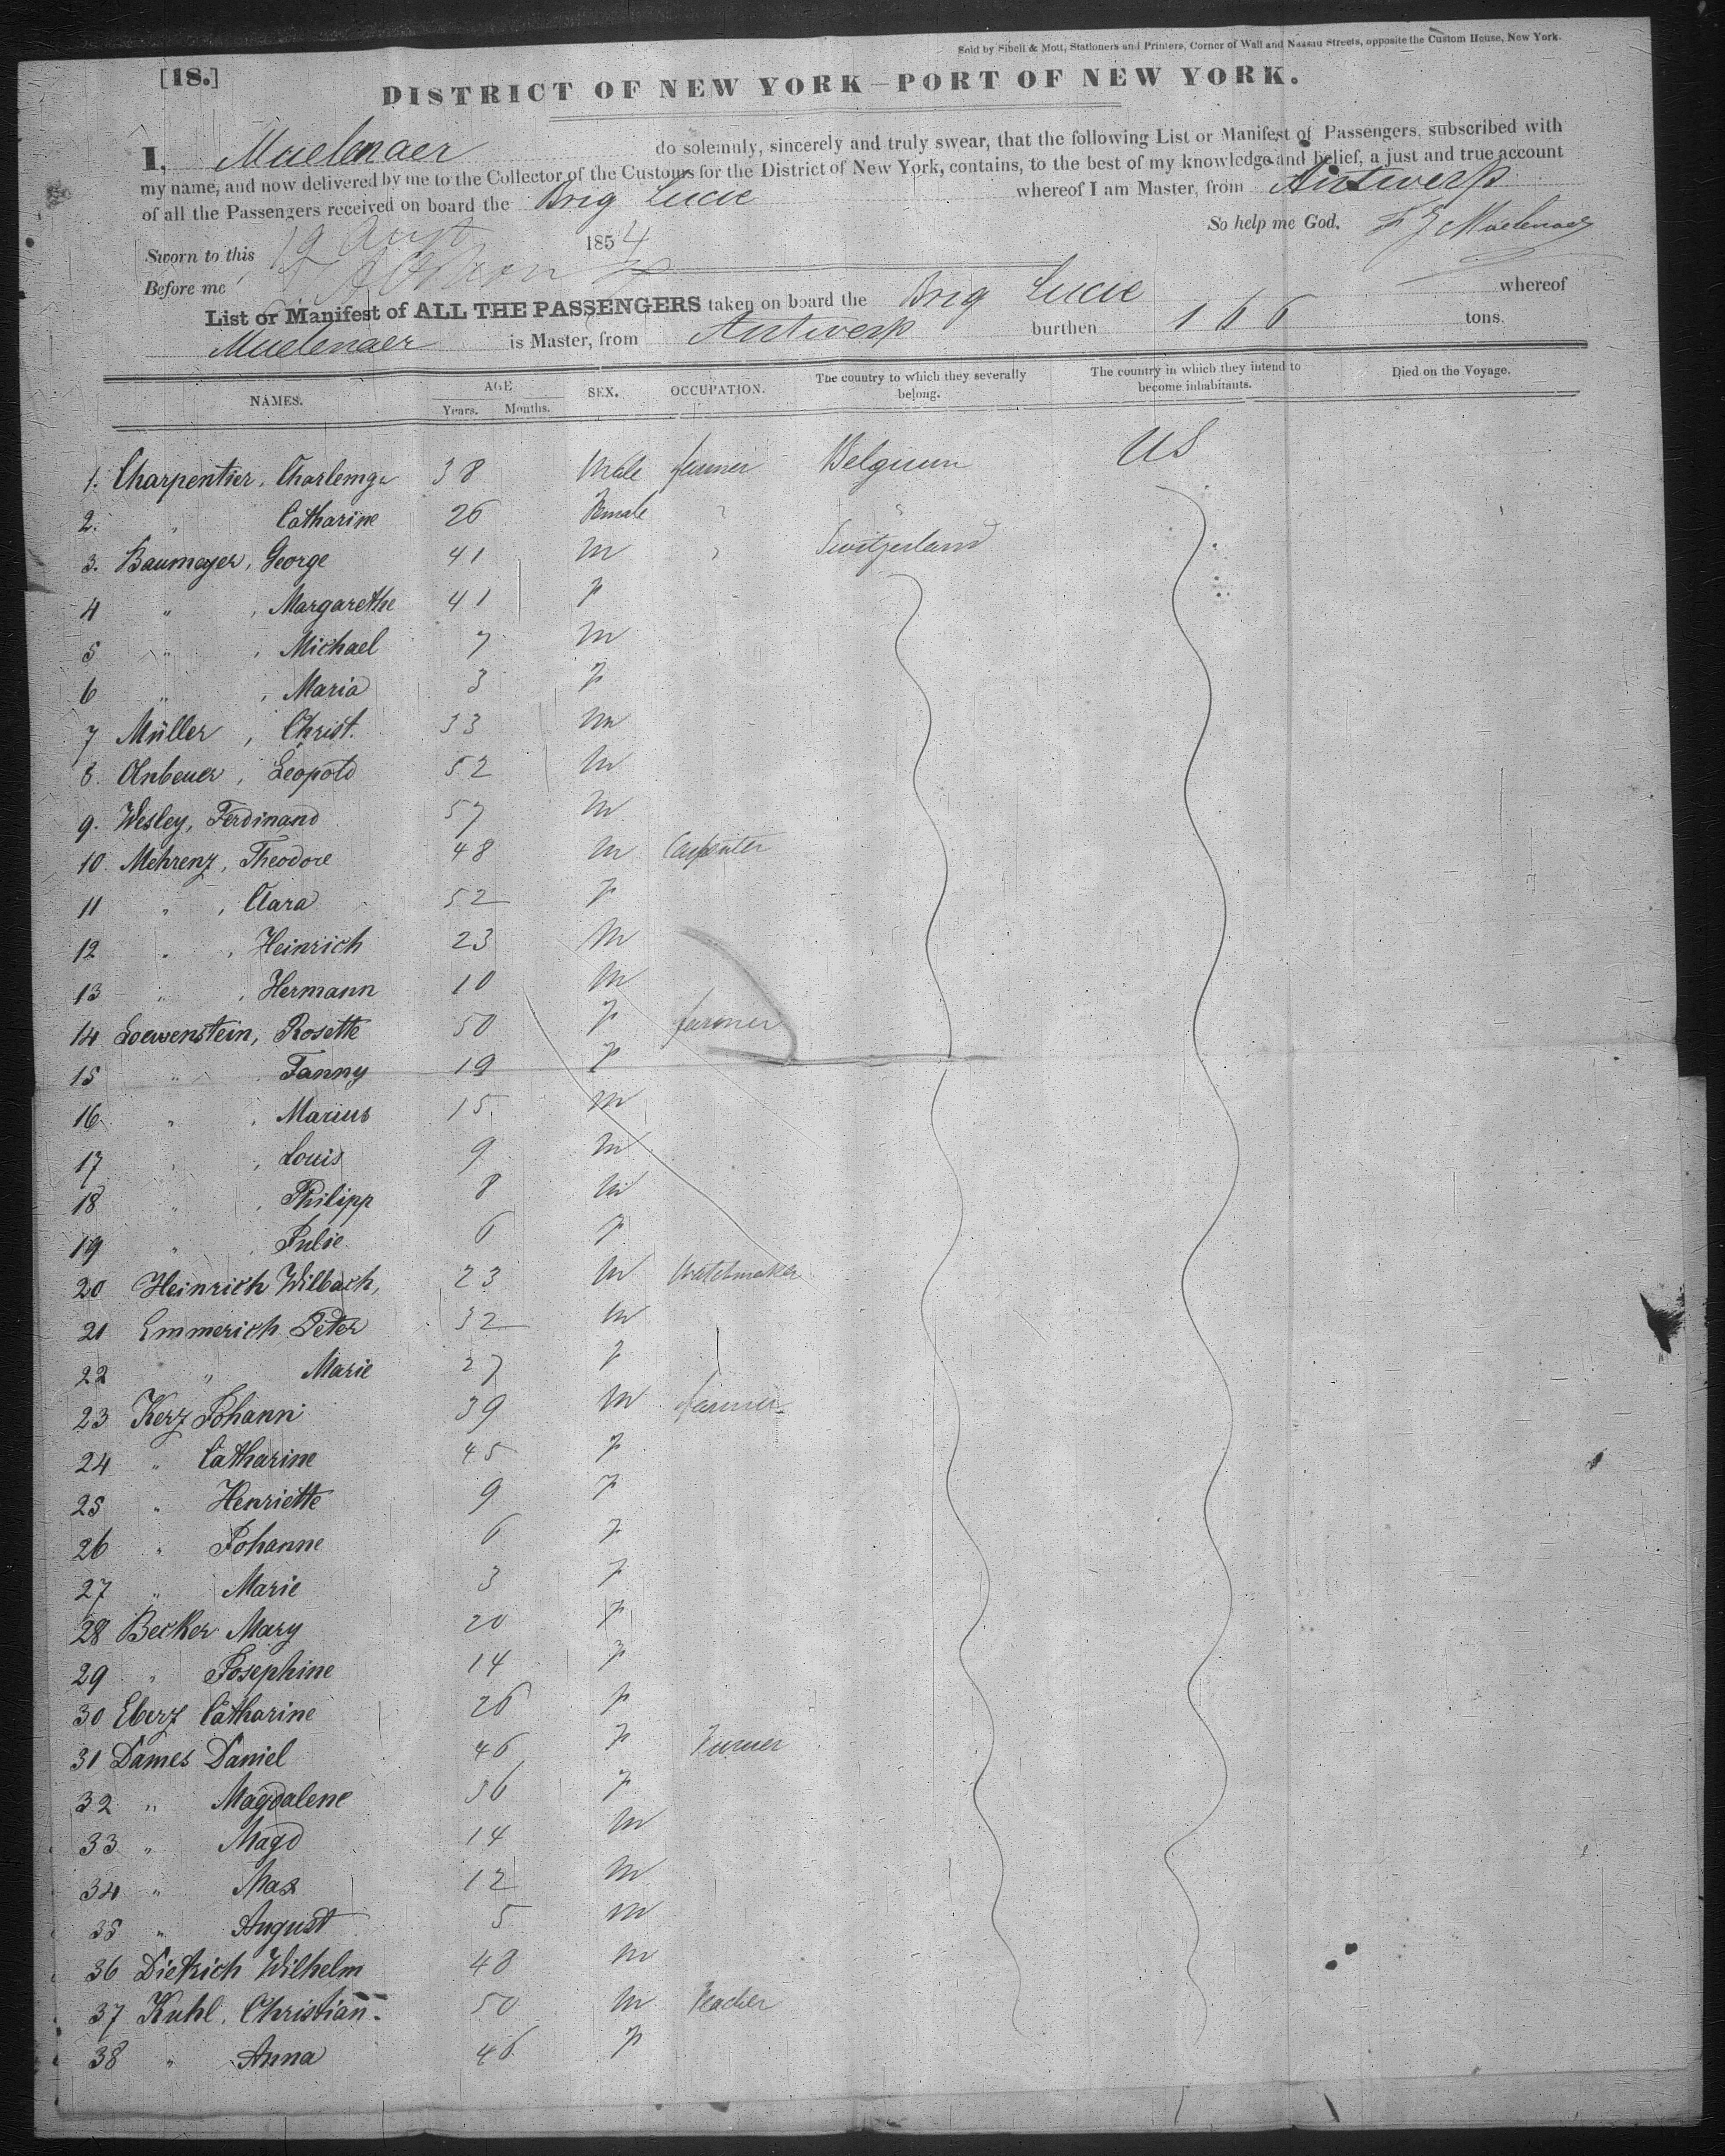 Sold by Sibell & Mott, Stationers and Printers, Corner of Wall and Nassau Streets, opposite the Custom House, New York.
[18.]
DISTRICT OF NEW YORK—PORT OF NEW YORK.
I, Muelenaer do solemnly, sincerely and truly swear, that the following List or Manifest of Passengers, subscribed with
my name, and now delivered by me to the Collector of the Customs for the District of New York, contains, to the best of my knowledge and belief, a just and true account
of all the Passengers received on board the Brig Lucie whereof I am Master, from Antwerp
So help me God. Muelenaer
Sworn to this 19 1854
Before me
List or Manifest of ALL THE PASSENGERS taken on board the Brig Lucie whereof
Muelenaer is Master, from Antwerp burthen 166 tons.
NAMES. AGE Years. Months. SEX. OCCUPATION. The country to which they severally belong. The country in which they intend to become inhabitants. Died on the Voyage.
1. Charpentier, 38 Male farmer Belgium US
2. " Catharine 26 Female " "
3. Baumeyer, George 41 M " Switzerland
4 " , Margarethe 41 F
5 " , Michael 7 M
6 " , Maria 3 F
7 Müller , Christ. 33 M
8. , Leopold 52 M
9. Wesley, Ferdinand 57 M
10 Mehrenz, Theodore 48 M Carpenter
11 " , Clara 52 F
12 " , Heinrich 23 M
13 " , Hermann 10 M
14 Loewenstein, Rosette 50 F farmer
15 " , Fanny 19 F
16 " , Marius 15 M
17 " , Louis 9 M
18 " , Philipp 8 M
19 " , Julie 6 F
20 Heinrich Wilbach, 23 M Watchmaker
21 Emmerich Peter 32 M
22 " Marie 27 F
23 Kerz Johann 39 M farmer
24 " Catharine 45 F
25 " Henriette 9 F
26 " Johanne 6 F
27 " Marie 3 F
28 Becker Mary 20 F
29 " Josephine 14 F
30 Eberz Catharine 26 F
31 Dames Daniel 46 F
32 " Magdalene 36 F
33 " Magd 14 M
34 " Max 12 M
35 " August 5 M
36 Dietrich Wilhelm 48 M
37 Kuhl, Christian 50 M Teacher
38 " Anna 46 F